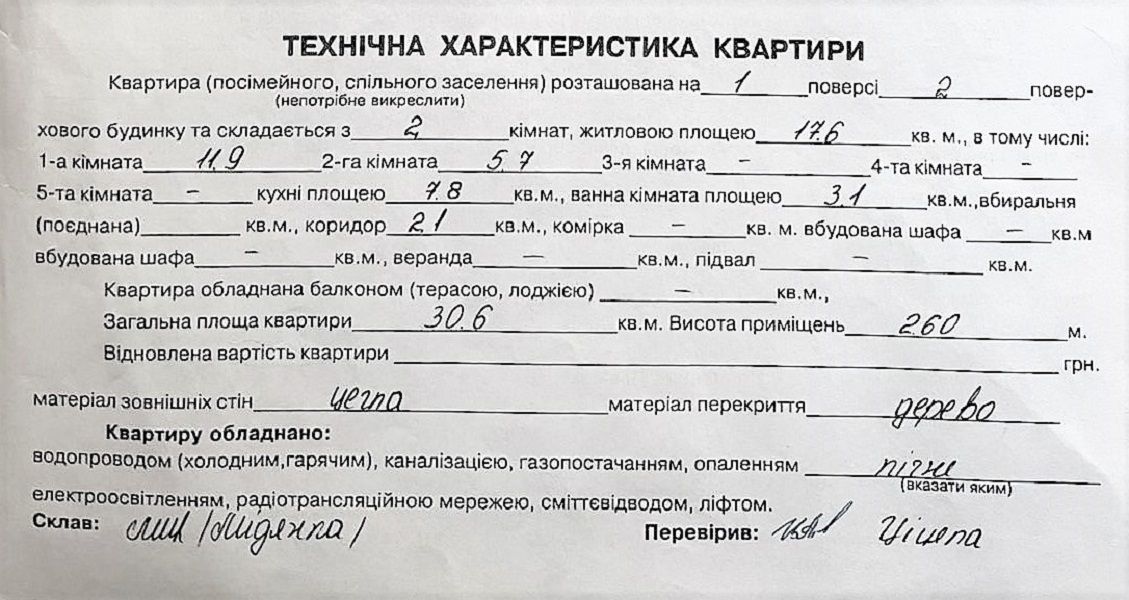 ТЕХНІЧНА ХАРАКТЕРИСТИКА КВАРТИРИ
Квартира (посімейного, спільного заселення) розташована на 1 поверсі 2 повер-
(непотрібне викреслити)
хового будинку та складається з 2 кімнат, житловою площею 17.6 кв. м., в тому числі:
1-а кімната 11.9 2-га кімната 5.7 3-я кімната – 4-та кімната –
5-та кімната – кухні площею 7.8 кв.м., ванна кімната площею 3.1 кв.м.,вбиральня
(поєднана) кв.м., коридор 2.1 кв.м., комірка – кв. м. вбудована шафа – кв.м
вбудована шафа – кв.м., веранда – кв.м., підвал – кв.м.
Квартира обладнана балконом (терасою, лоджією) – кв.м.,
Загальна площа квартири 30.6 кв.м. Висота приміщень 2.60 м.
Відновлена вартість квартири грн.
матеріал зовнішніх стін цегла матеріал перекриття дерево
Квартиру обладнано:
водопроводом (холодним,гарячим), каналізацією, газопостачанням, опаленням пічне
(вказати яким)
електроосвітленням, радіотрансляційною мережею, сміттєвідводом, ліфтом.
Склав: Перевірив: